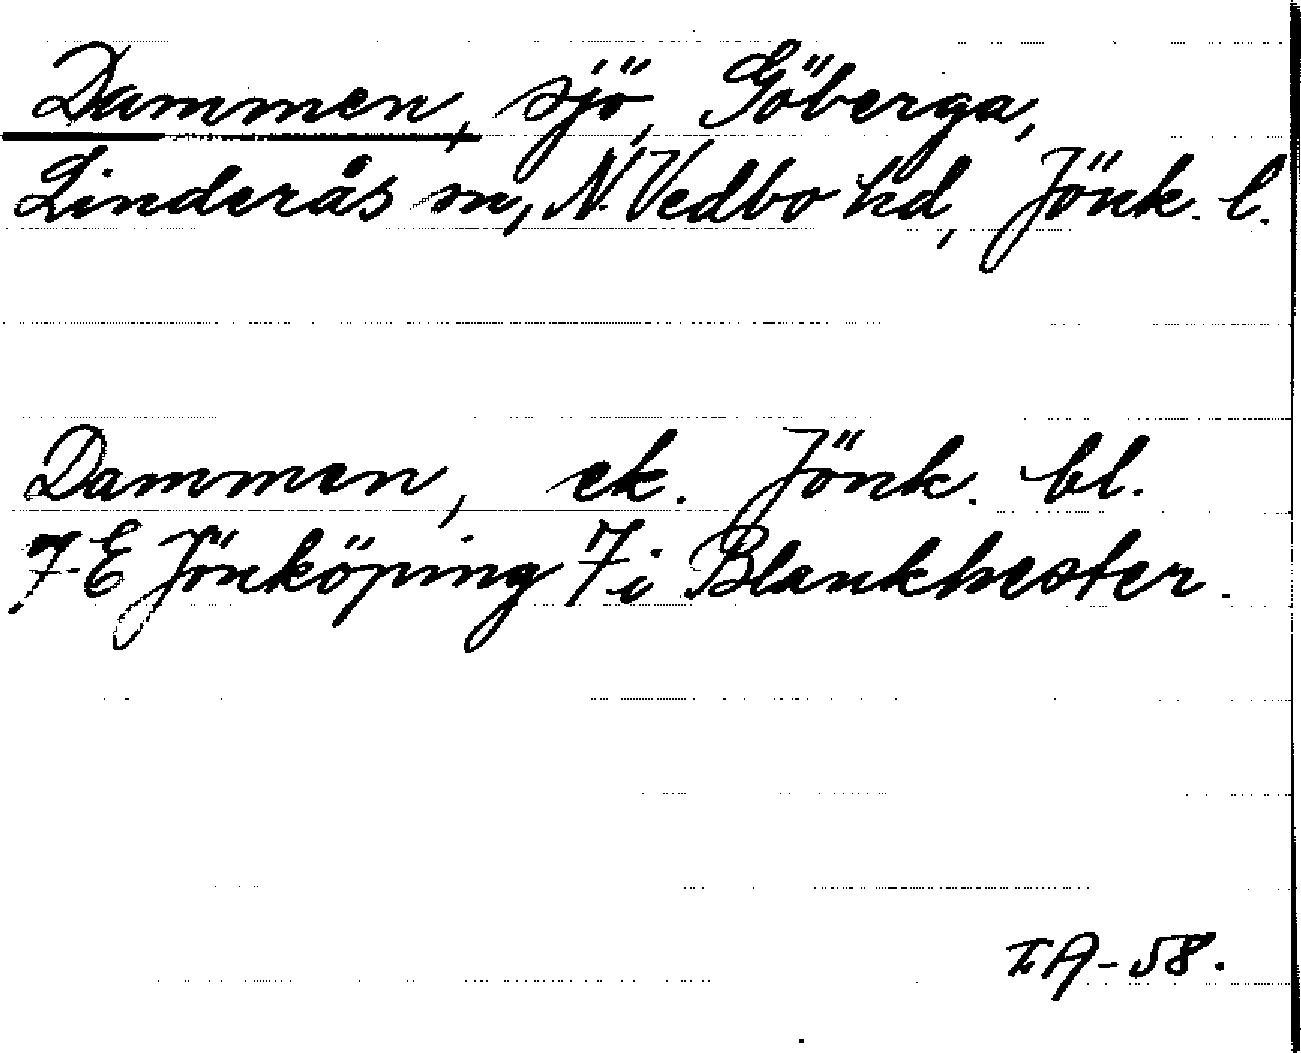 Dammen, sjö, Göberga,
Linderås sn, N. Vedbo hd, Jönk. l.
Dammen, ek. Jönk. bl.
7 E Jönköping 7 i Blankhester.
TA-58.